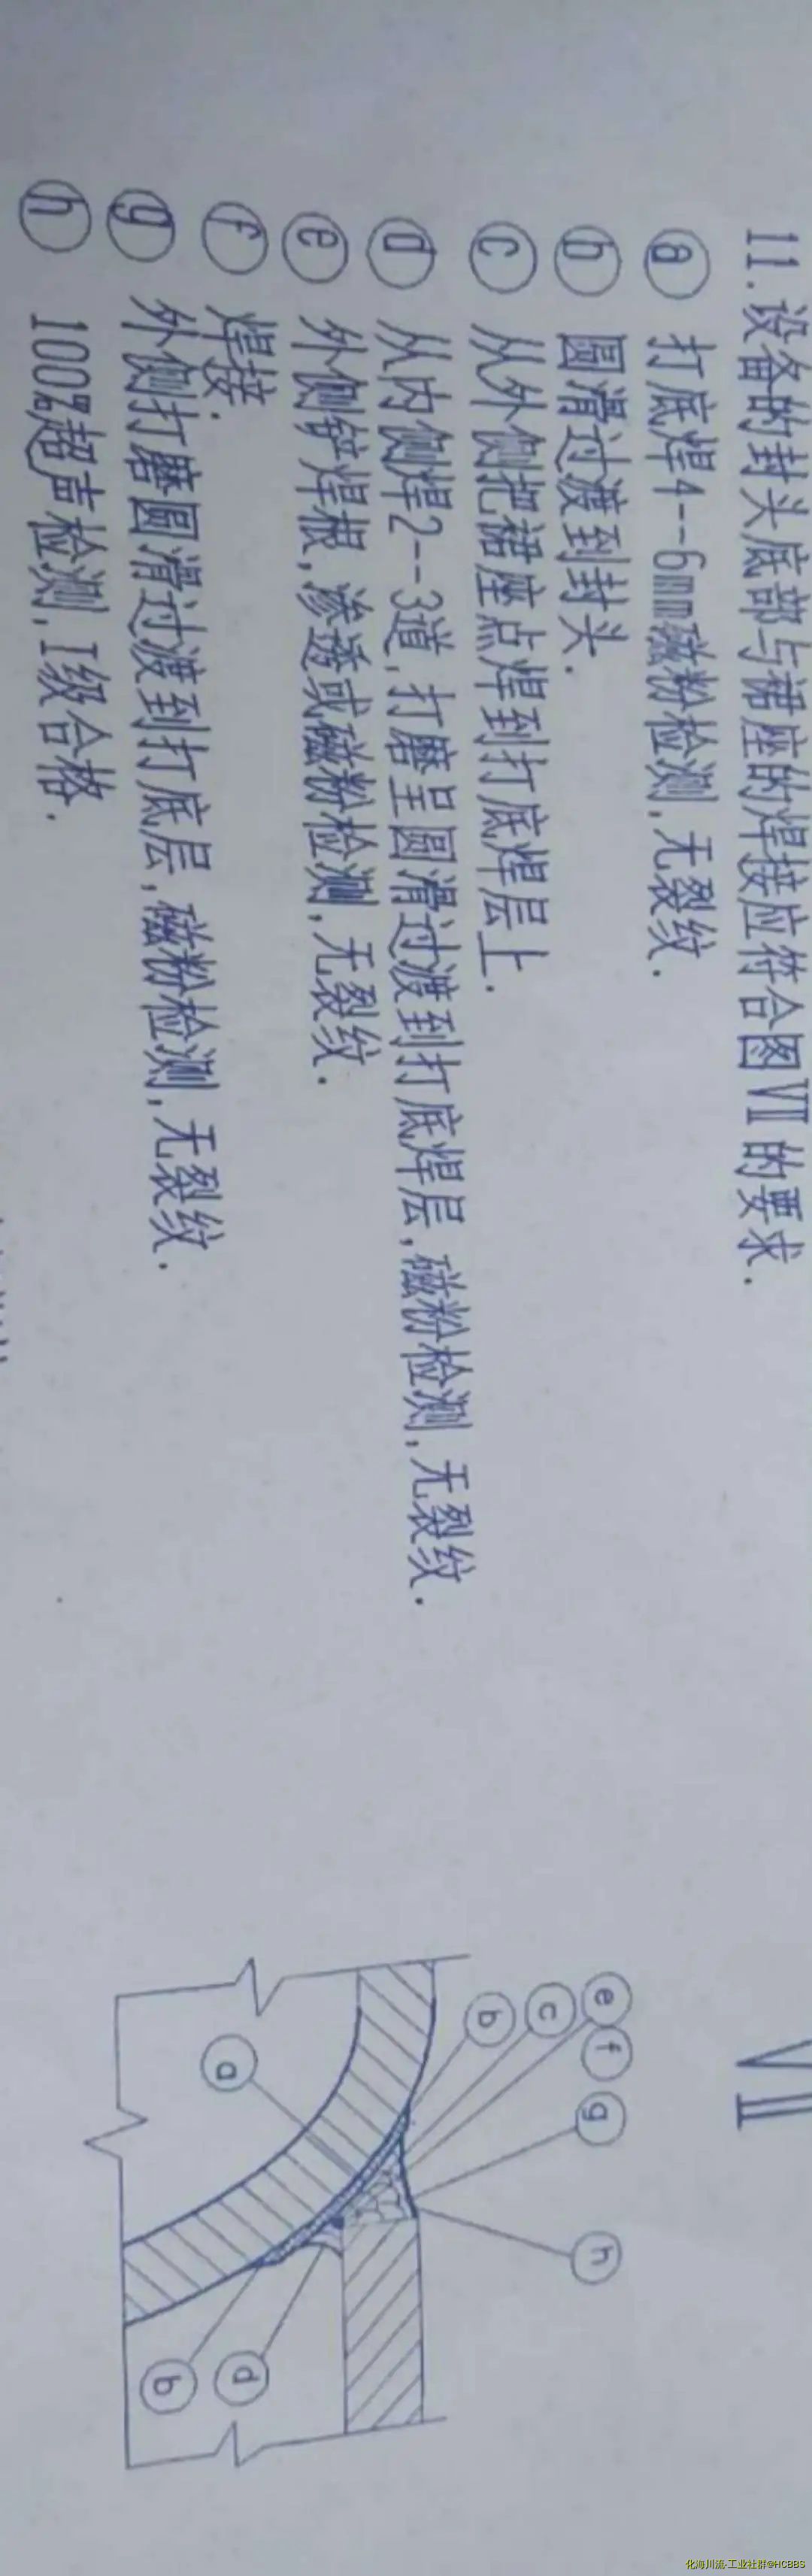 11.设备的封头底部与裙座的焊接应符合图Ⅶ的要求.
ⓐ 打底焊4--6mm磁粉检测,无裂纹.
ⓑ 圆滑过渡到封头.
ⓒ 从外侧把裙座点焊到打底焊层上.
ⓓ 从内侧焊2--3道,打磨呈圆滑过渡到打底焊层,磁粉检测,无裂纹.
ⓔ 外侧铲焊根,渗透或磁粉检测,无裂纹.
ⓕ 焊接.
ⓖ 外侧打磨圆滑过渡到打底层,磁粉检测,无裂纹.
ⓗ 100%超声检测,I级合格.
Ⅶ
ⓔ
ⓕ
ⓒ
ⓑ
ⓖ
ⓗ
ⓐ
ⓓ
ⓑ
化海川流·工业社群@HCBBS